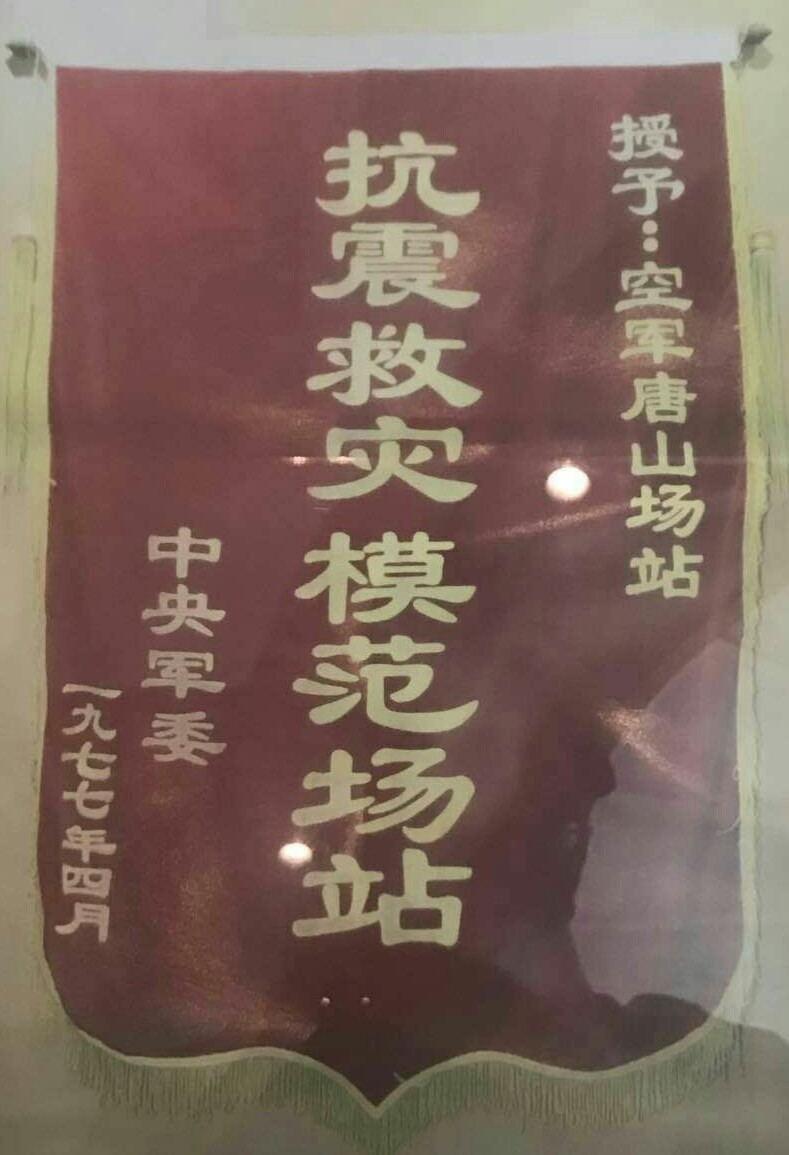 授予：空军唐山场站
抗震救灾模范场站
中央军委
一九七七年四月